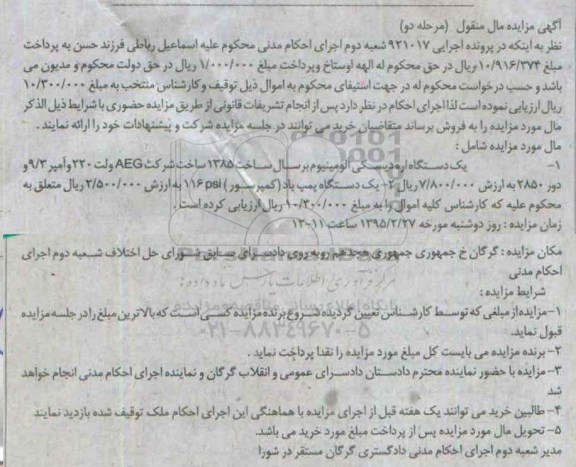 آگهی مزایده مال منقول (مرحله دو)
نظر به اینکه در پرونده اجرایی ۹۲۱۰۱۷ شعبه دوم اجرای احکام مدنی محکوم علیه اسماعیل رباطی فرزند حسن به پرداخت
مبلغ ۱۰/۹۱۶/۳۷۴ ریال در حق محکوم له الهه اوستاخ و پرداخت مبلغ ۱/۰۰۰/۰۰۰ ریال در حق دولت محکوم و مدیون می
باشد و حسب درخواست محکوم له در جهت استیفای محکوم به اموال ذیل توقیف و کارشناس منتخب به مبلغ ۱۰/۳۰۰/۰۰۰
ریال ارزیابی نموده است لذا اجرای احکام در نظر دارد پس از انجام تشریفات قانونی از طریق مزایده حضوری با شرایط ذیل الذکر
مال مورد مزایده را به فروش برساند متقاضیان خرید می توانند در جلسه مزایده شرکت و پیشنهادات خود را ارائه نمایند .
مال مورد مزایده شامل :
۱- یک دستگاه اره دیسکی الومینیوم بر سال ساخت ۱۳۸۵ ساخت شرکت AEG ولت ۲۲۰ و آمپر ۹/۳ و
دور ۲۸۵۰ به ارزش ۷/۸۰۰/۰۰۰ ریال ۲- یک دستگاه پمپ باد (کمپرسور) ۱۱۶ psi به ارزش ۲/۵۰۰/۰۰۰ ریال متعلق به
محکوم علیه که کارشناس کلیه اموال را به مبلغ ۱۰/۳۰۰/۰۰۰ ریال ارزیابی کرده است .
زمان مزایده : روز دوشنبه مورخه ۱۳۹۵/۲/۲۷ ساعت ۱۱-۱۳
مکان مزایده : گرگان خ جمهوری جمهوری هجدهم روبه روی دادسرای سابق شورای حل اختلاف شعبه دوم اجرای
احکام مدنی
شرایط مزایده :
۱- مزایده از مبلغی که توسط کارشناس تعیین گردیده شروع برنده مزایده کسی است که بالاترین مبلغ را در جلسه مزایده
قبول نماید.
۲- برنده مزایده می بایست کل مبلغ مورد مزایده را نقدا پرداخت نماید .
۳- مزایده با حضور نماینده محترم دادستان دادسرای عمومی و انقلاب گرگان و نماینده اجرای احکام مدنی انجام خواهد
شد
۴- طالبین خرید می توانند یک هفته قبل از اجرای مزایده با هماهنگی این اجرای احکام ملک توقیف شده بازدید نمایند
۵- تحویل مال مورد مزایده پس از پرداخت مبلغ مورد خرید می باشد.
مدیر شعبه دوم اجرای احکام مدنی دادگستری گرگان مستقر در شورا
۰۲۱-۸۸۳۴۹۶۷۰-۵